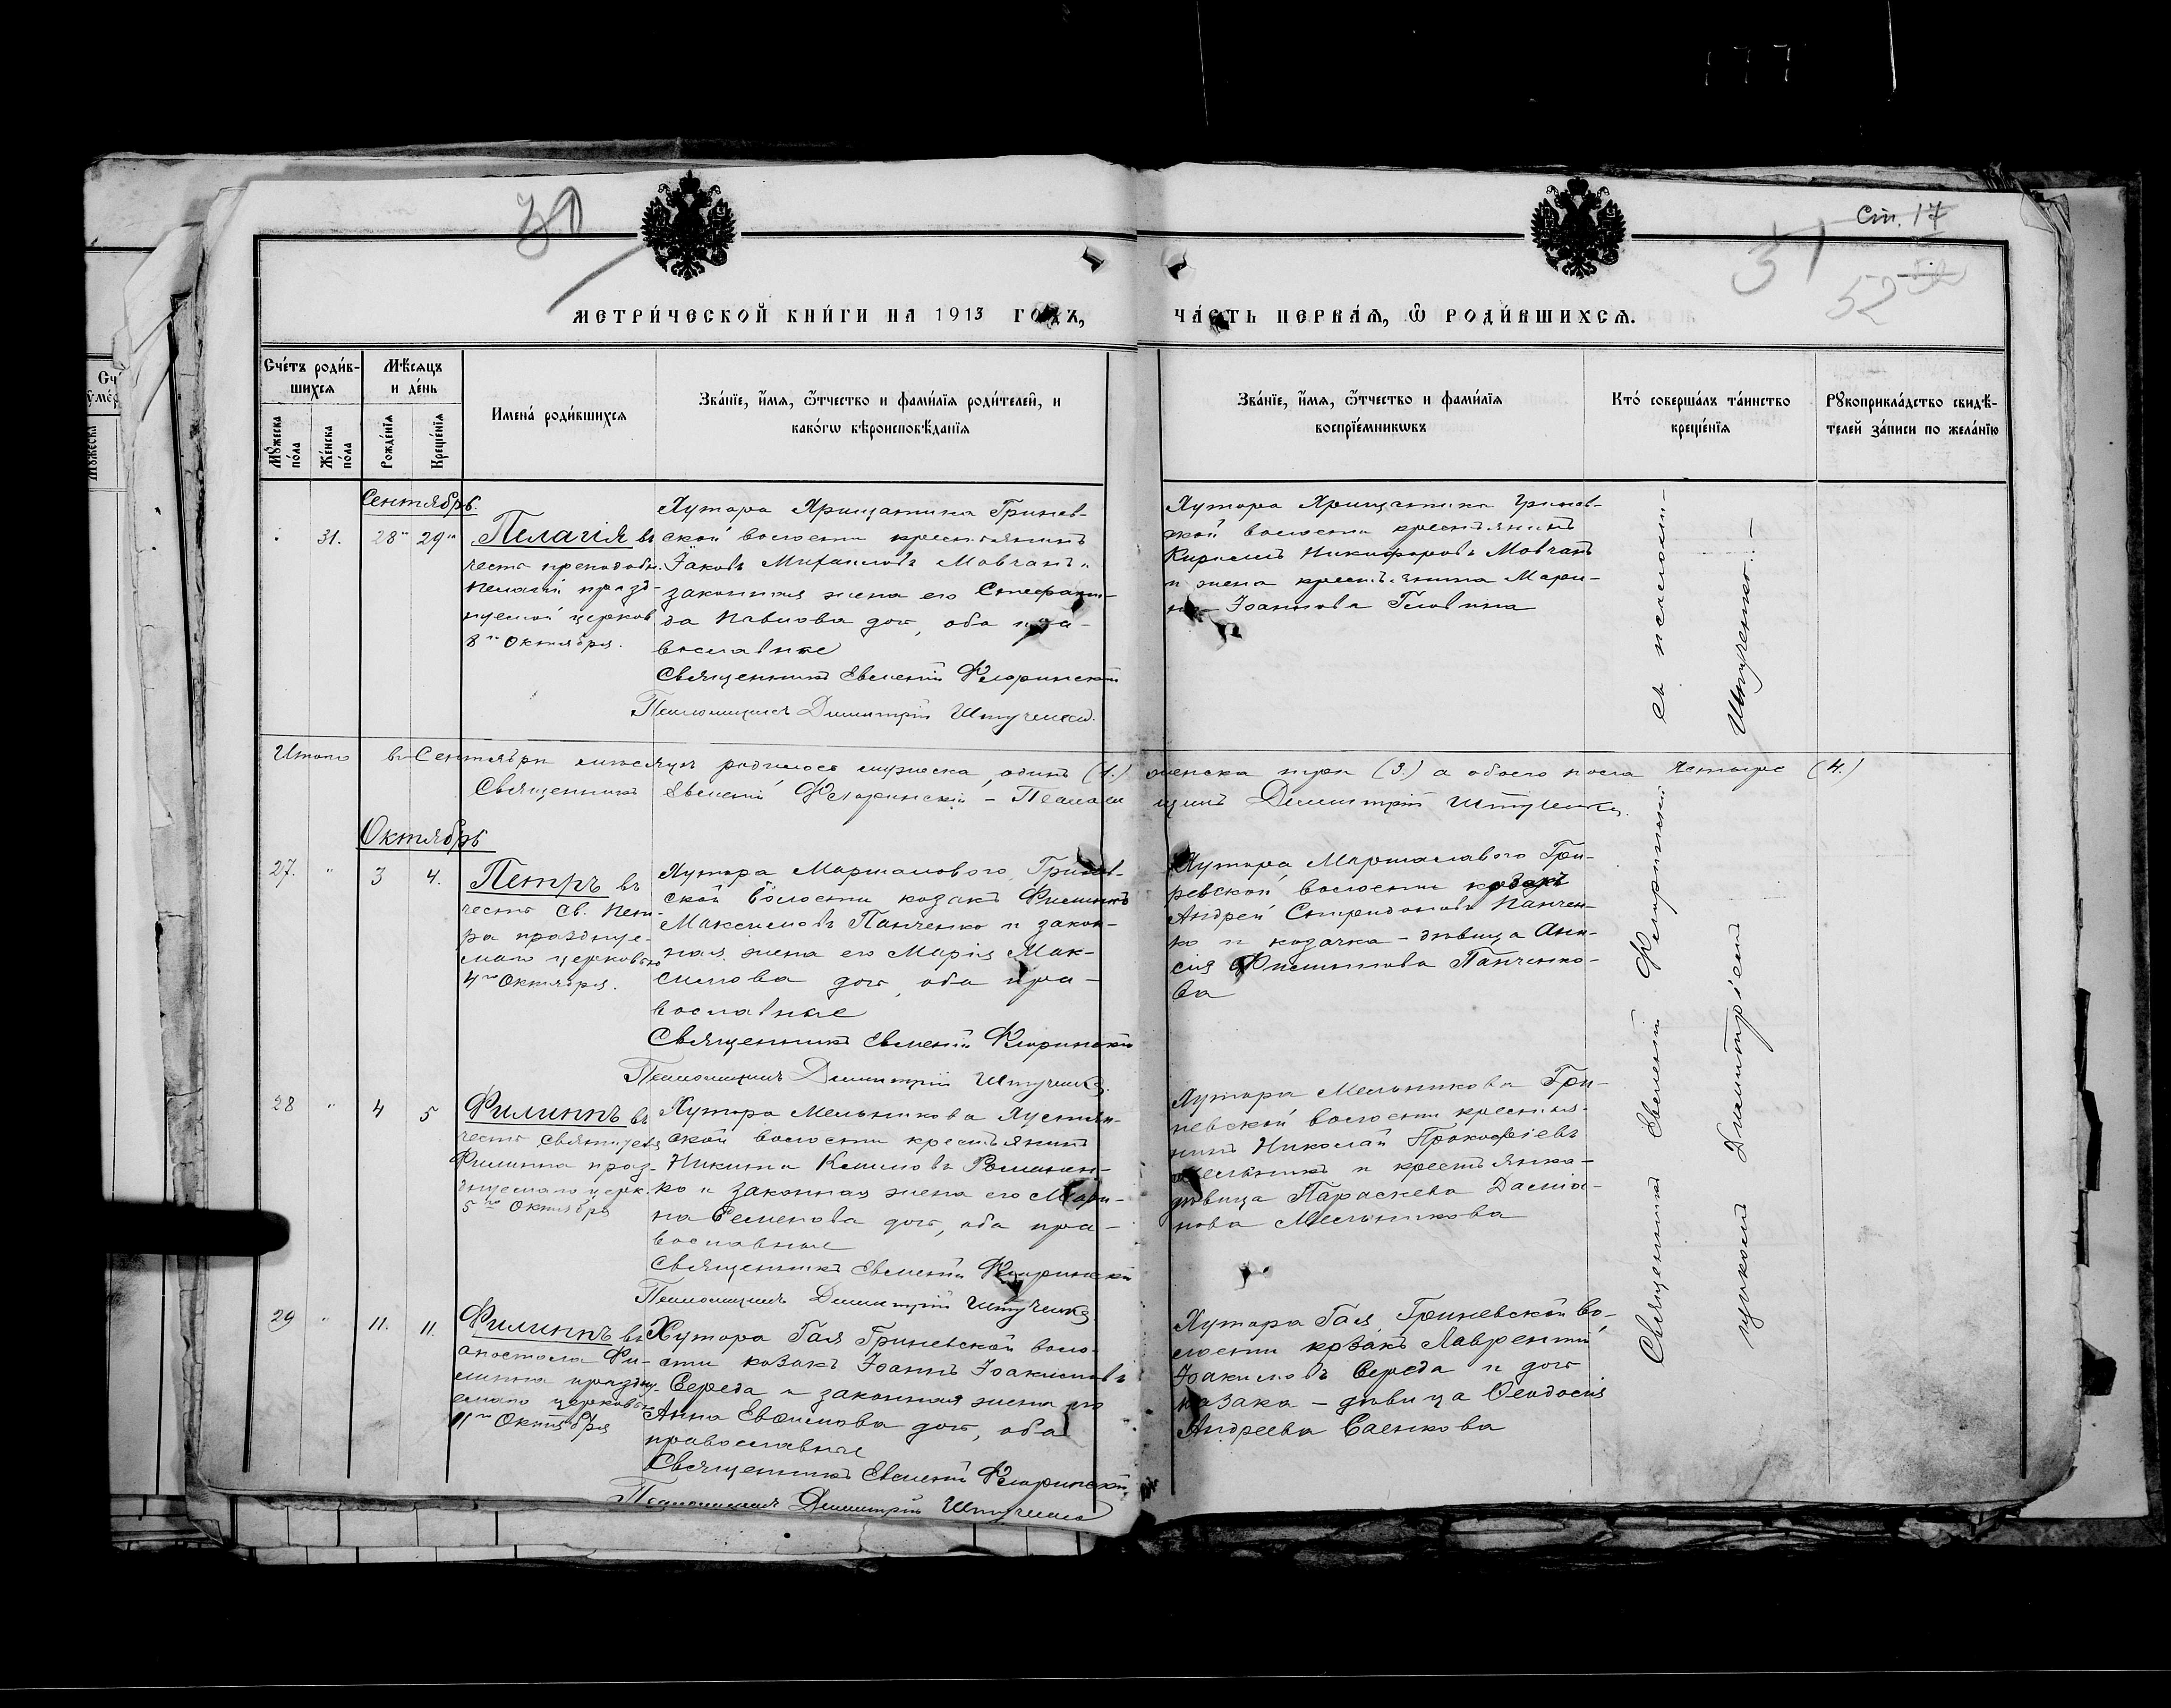 177
Сті. 17
31
52
МЕТРИ́ЧЕСКОЙ КНИ́ГИ НА 1913 ГОДЪ,
ЧА́СТЬ ПЕРВА́Я, Ѡ РОДИ́ВШИХСЯ.
Сче́тъ роди́в-
шихся
Мѣ́сяцъ
и де́нь
Мꙋ́жеска
по́ла
Же́нска
по́ла
Рожде́нїя
Креще́нїя
Имена́ роди́вшихся
Зва́нїе, и́мя, ѻ́тчество и фами́лїя роди́телей, и
како́гѡ вѣроисповѣ́данїя
Зва́нїе, и́мя, ѻ́тчество и фами́лїя
воспрїе́мникѡвъ
Кто́ соверша́лъ та́инство
креще́нїя
Рꙋкоприкла́дство свидѣ́-
телей за́писи по жела́нїю
Сентябрь.
31. 28 29
Пелагія въ
честь преподобн.
Пелагіи празд-
нуемой церков
8го Октября.
Хутора Хрищатика Гринев-
ской волости крестьянинъ
Іаковъ Михаиловъ Мовчанъ и
законная жена его Стефани-
да Павлова дочь, оба пра-
вославные
Священникъ Евменій Флоринскій
Псаломщикъ Димитрій Штученко.
Хутора Хрищатика Гринев-
ской волости крестьянинъ
Кириллъ Никифоровъ Мовчанъ
и жена крестьянина Мари-
на Іоаннова Головина
Итого въ Сентябрѣ мѣсяцѣ родилось мужеска одинъ (1.) женска три (3.) а обоего пола четыре (4.)
Священникъ Евменій Флоринскій – Псаломщикъ Димитрій Штученко.
Октябрь
27. " 3 4.
Петръ въ
честь Св. Пет-
ра празднуе-
маго церковью
4го Октября.
Хутора Маршалового, Гринев-
ской волости козакъ Филиппъ
Максимовъ Панченко и закон-
ная жена его Марія Мак-
симова дочь, оба пра-
вославные
Священникъ Евменій Флоринскій
Псаломщикъ Димитрій Штученко.
Хутора Маршалавого Гри-
невской волости козакъ
Андрей Спиридоновъ Панчен-
ко и козачка – дѣвица Ани-
сія Филиппова Панченко-
ва
28 " 4 5
Филиппъ въ
честь святителя
Филиппа праз-
днуемаго церк.
5го Октября
Хутора Мельникова Хустян-
ской волости крестьянинъ
Никита Климовъ Романен-
ко и законная жена его Мари-
на Семенова дочь, оба пра-
вославные
Священникъ Евменій Флоринскій
Псаломщикъ Димитрій Штученко.
Хутора Мельникова Гри-
невской волости крестья-
нинъ Николай Прокофіевъ
Мельникъ и крестьянка-
дѣвица Параскева Даміа-
нова Мельникова
29 " 11. 11.
Филиппъ въ
апостола Фи-
липпа праздну-
емаго церковью
11го Октября
Хутора Гая Гриневской воло-
сти козакъ Іоаннъ Іоакимовъ
Середа и законная жена его
Анна Евѳимова дочь, оба
православные
Священникъ Евменій Флоринскій
Псаломщикъ Димитрій Штученко
Хутора Гая, Гриневской во-
лости козакъ Лаврентій
Іоакимовъ Середа и дочь
козака – дѣвица Ѳеодосія
Андреева Саенкова
Священникъ Евменій Флоринскій съ псаломщикомъ
Димитріемъ Штученко. –